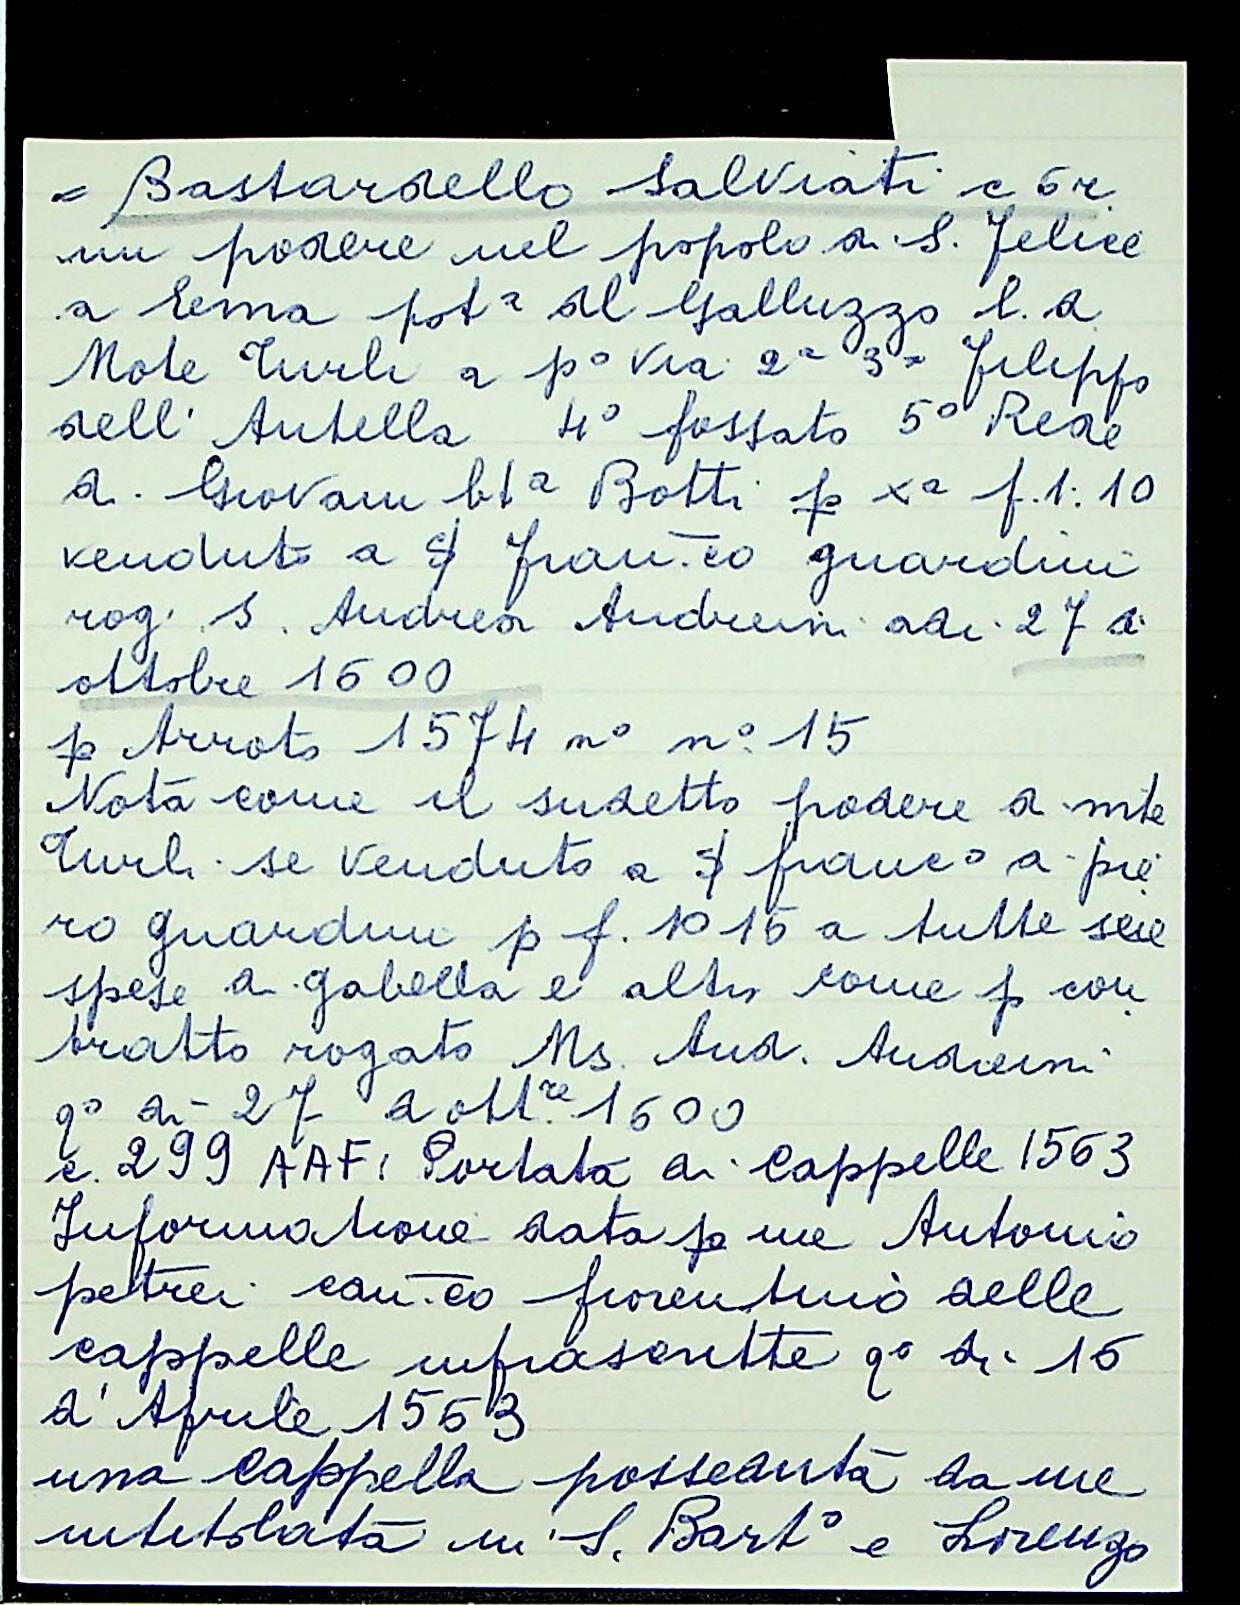 = Bastardello Salviati c 6 r.
un podere nel popolo di S. Felice
a Ema potª del Galluzzo l. d.
Mote Turli a pº via 2ª 3ª Filippo
dell' Antella 4º fossato 5º Rede
di Giovan btª Botti p xª f. 1:10
venduto a franco guardini
rog. S. Andrea Andreini adi 27 d
ottobre 1600
p Arroto 1574 nº nº 15
Nota come il sudetto podere d mte
Turli se venduto a francº a pie
ro guardini p f. 1015 a tutte sue
spese di gabella e altro come p con
tratto rogato Ms. And. Andreini
qº di 27 d ottre 1600
c. 299 AAF: Portata di Cappelle 1563
Informatione data p me Antonio
petrei can.co fiorentino delle
cappelle infrascritte qº di 16
d' Aprile 1563
una Cappella posseduta da me
intitolata in S. Bartº e Lorenzo